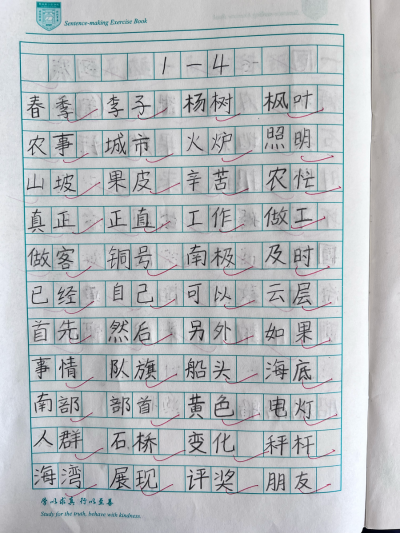 Sentence-making Exercise Book
1-4
春季 李子 杨树 枫叶
农事 城市 火炉 照明
山坡 果皮 辛苦 农忙
真正 正直 工作 做工
做客 铜号 南极 及时
已经 自己 可以 云层
首先 然后 另外 如果
事情 队旗 船头 海底
南部 部首 黄色 电灯
人群 石桥 变化 秤杆
海湾 展现 评奖 朋友
学以求真 行以至善
Study for the truth, behave with kindness.